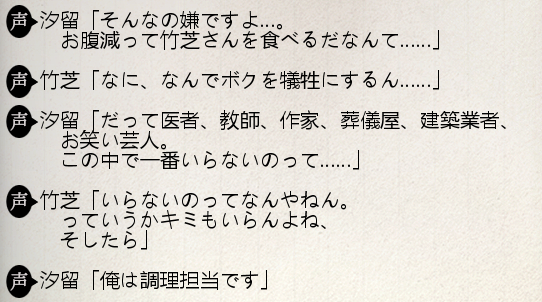 声 汐留「そんなの嫌ですよ…。
お腹減って竹芝さんを食べるだなんて……」
声 竹芝「なに、なんでボクを犠牲にするん……」
声 汐留「だって医者、教師、作家、葬儀屋、建築業者、
お笑い芸人。
この中で一番いらないのって……」
声 竹芝「いらないのってなんやねん。
っていうかキミもいらんよね、
そしたら」
声 汐留「俺は調理担当です」